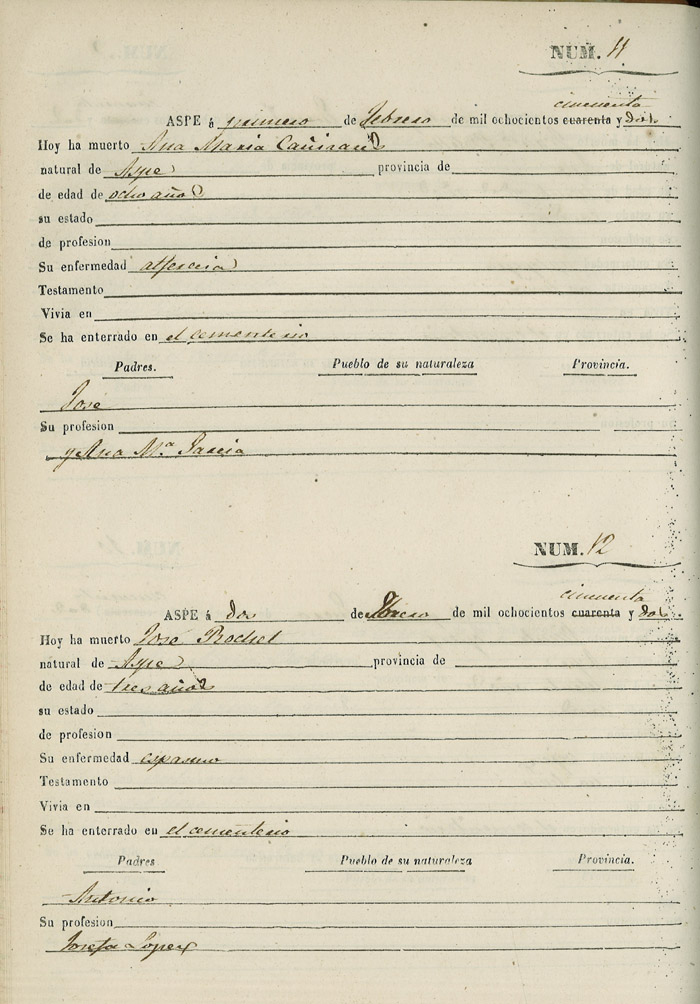 NUM. 11
cincuenta
ASPE á primero de Febrero de mil ochocientos cuarenta y dos.
Hoy ha muerto Ana Maria Cañizares
natural de Aspe provincia de
de edad de ocho años
su estado
de profesion
Su enfermedad alferecia
Testamento
Vivia en
Se ha enterrado en el cementerio
Padres. Pueblo de su naturaleza Provincia.
José
Su profesion
y Ana Mª Garcia
NUM. 12
cincuenta
ASPE á dos de de mil ochocientos cuarenta y dos.
Hoy ha muerto José
natural de Aspe ,provincia de
de edad de tres años
su estado
de profesion
Su enfermedad espasmo
Testamento
Vivia en
Se ha enterrado en el cementerio
Padres Pueblo de su naturaleza Provincia.
Antonio
Su profesion
Josefa Lopez